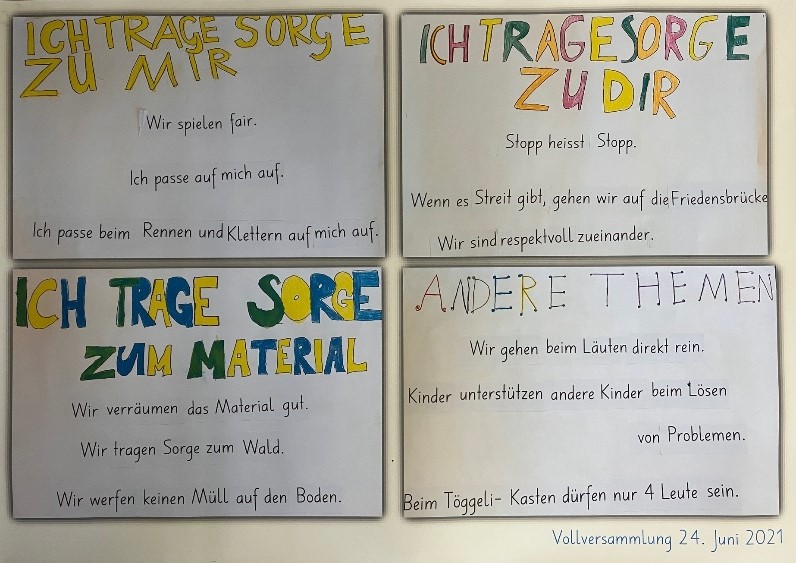 ICH TRAGE SORGE
ZU MIR
Wir spielen fair.
Ich passe auf mich auf.
Ich passe beim Rennen und Klettern auf mich auf.
ICH TRAGE SORGE
ZU DIR
Stopp heisst Stopp.
Wenn es Streit gibt, gehen wir auf die Friedensbrücke
Wir sind respektvoll zueinander.
ICH TRAGE SORGE
ZUM MATERIAL
Wir verräumen das Material gut.
Wir tragen Sorge zum Wald.
Wir werfen keinen Müll auf den Boden.
ANDERE THEMEN
Wir gehen beim Läuten direkt rein.
Kinder unterstützen andere Kinder beim Lösen
von Problemen.
Beim Töggeli- Kasten dürfen nur 4 Leute sein.
Vollversammlung 24. Juni 2021